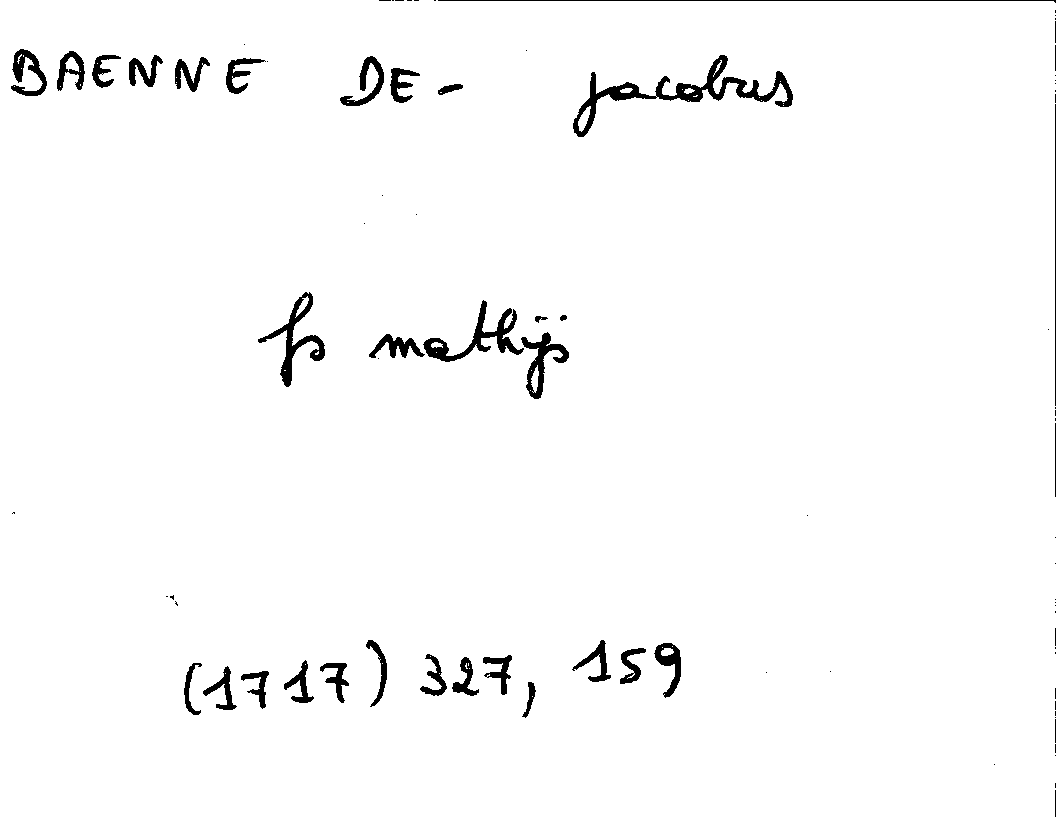 BAENNE DE- Jacobus
fs mathijs
(1717) 327, 159